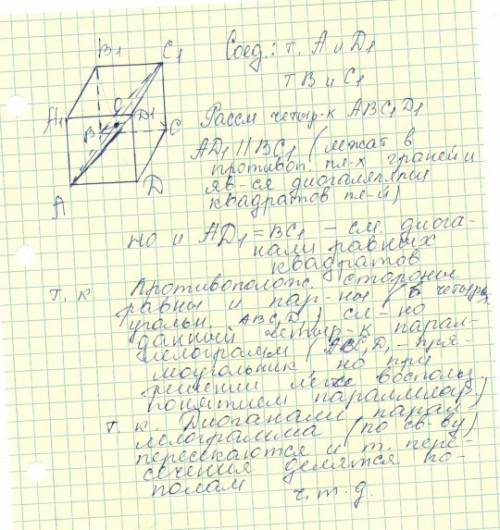 B1
C1
A1
O
D1
B
C
A
D
Соед.: т. A и D1
т B и C1
Рассм четыр-к ABC1D1
AD1 || BC1 (лежат в
противоп. пл-х граней и
яв-ся диогаллялями
квадратов пл-й)
но и AD1 = BC1 - см. диога-
нали равных
квадратов
т. к Противополож. стороны
равны и пар-ны (в четырех
угольн. ABC1D1) сл-но
данный четыр-к парал-
лелограмм (ABC1D1 - пря-
моугольник, но при
решении легче воспольз.
понятием параллелогр)
т. к. Диоганами парал
лелограмма (по св-ву)
пересекаются и т. пере-
сечения делятся по-
полам
ч.т.д.